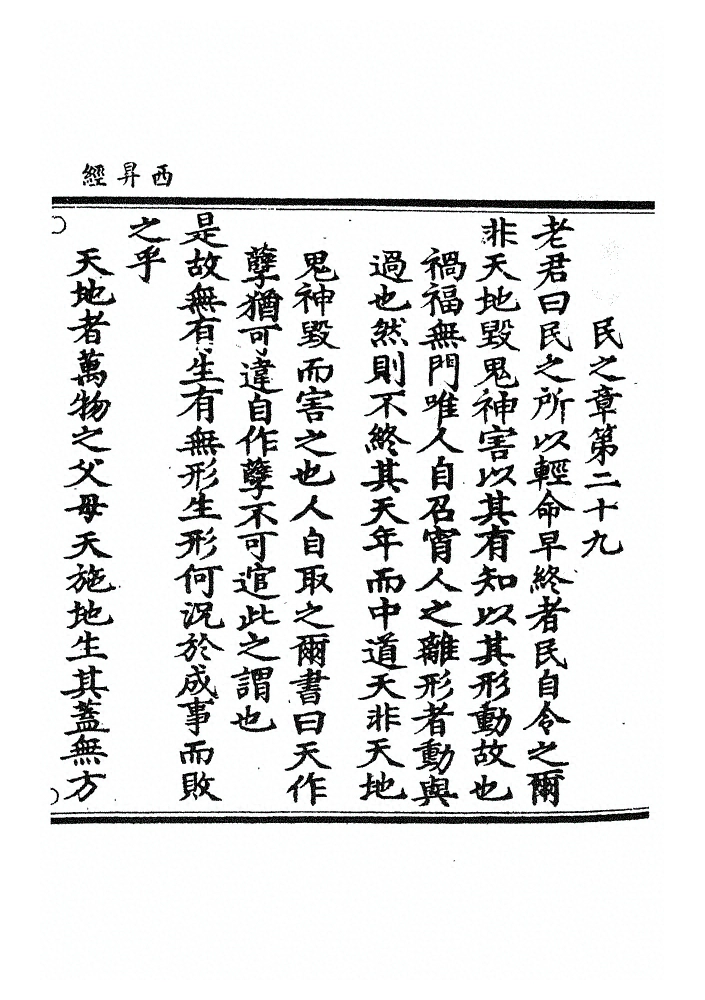 西昇經
民之章第二十九
老君曰民之所以輕命早終者民自令之爾
非天地毀鬼神害以其有知以其形動故也
禍福無門唯人自召宵人之離形者動與
過也然則不終其天年而中道夭非天地
鬼神毀而害之也人自取之爾書曰天作
孽猶可違自作孽不可逭此之謂也
是故無有生有無形生形何況於成事而敗
之乎
天地者萬物之父母天施地生其蓋無方